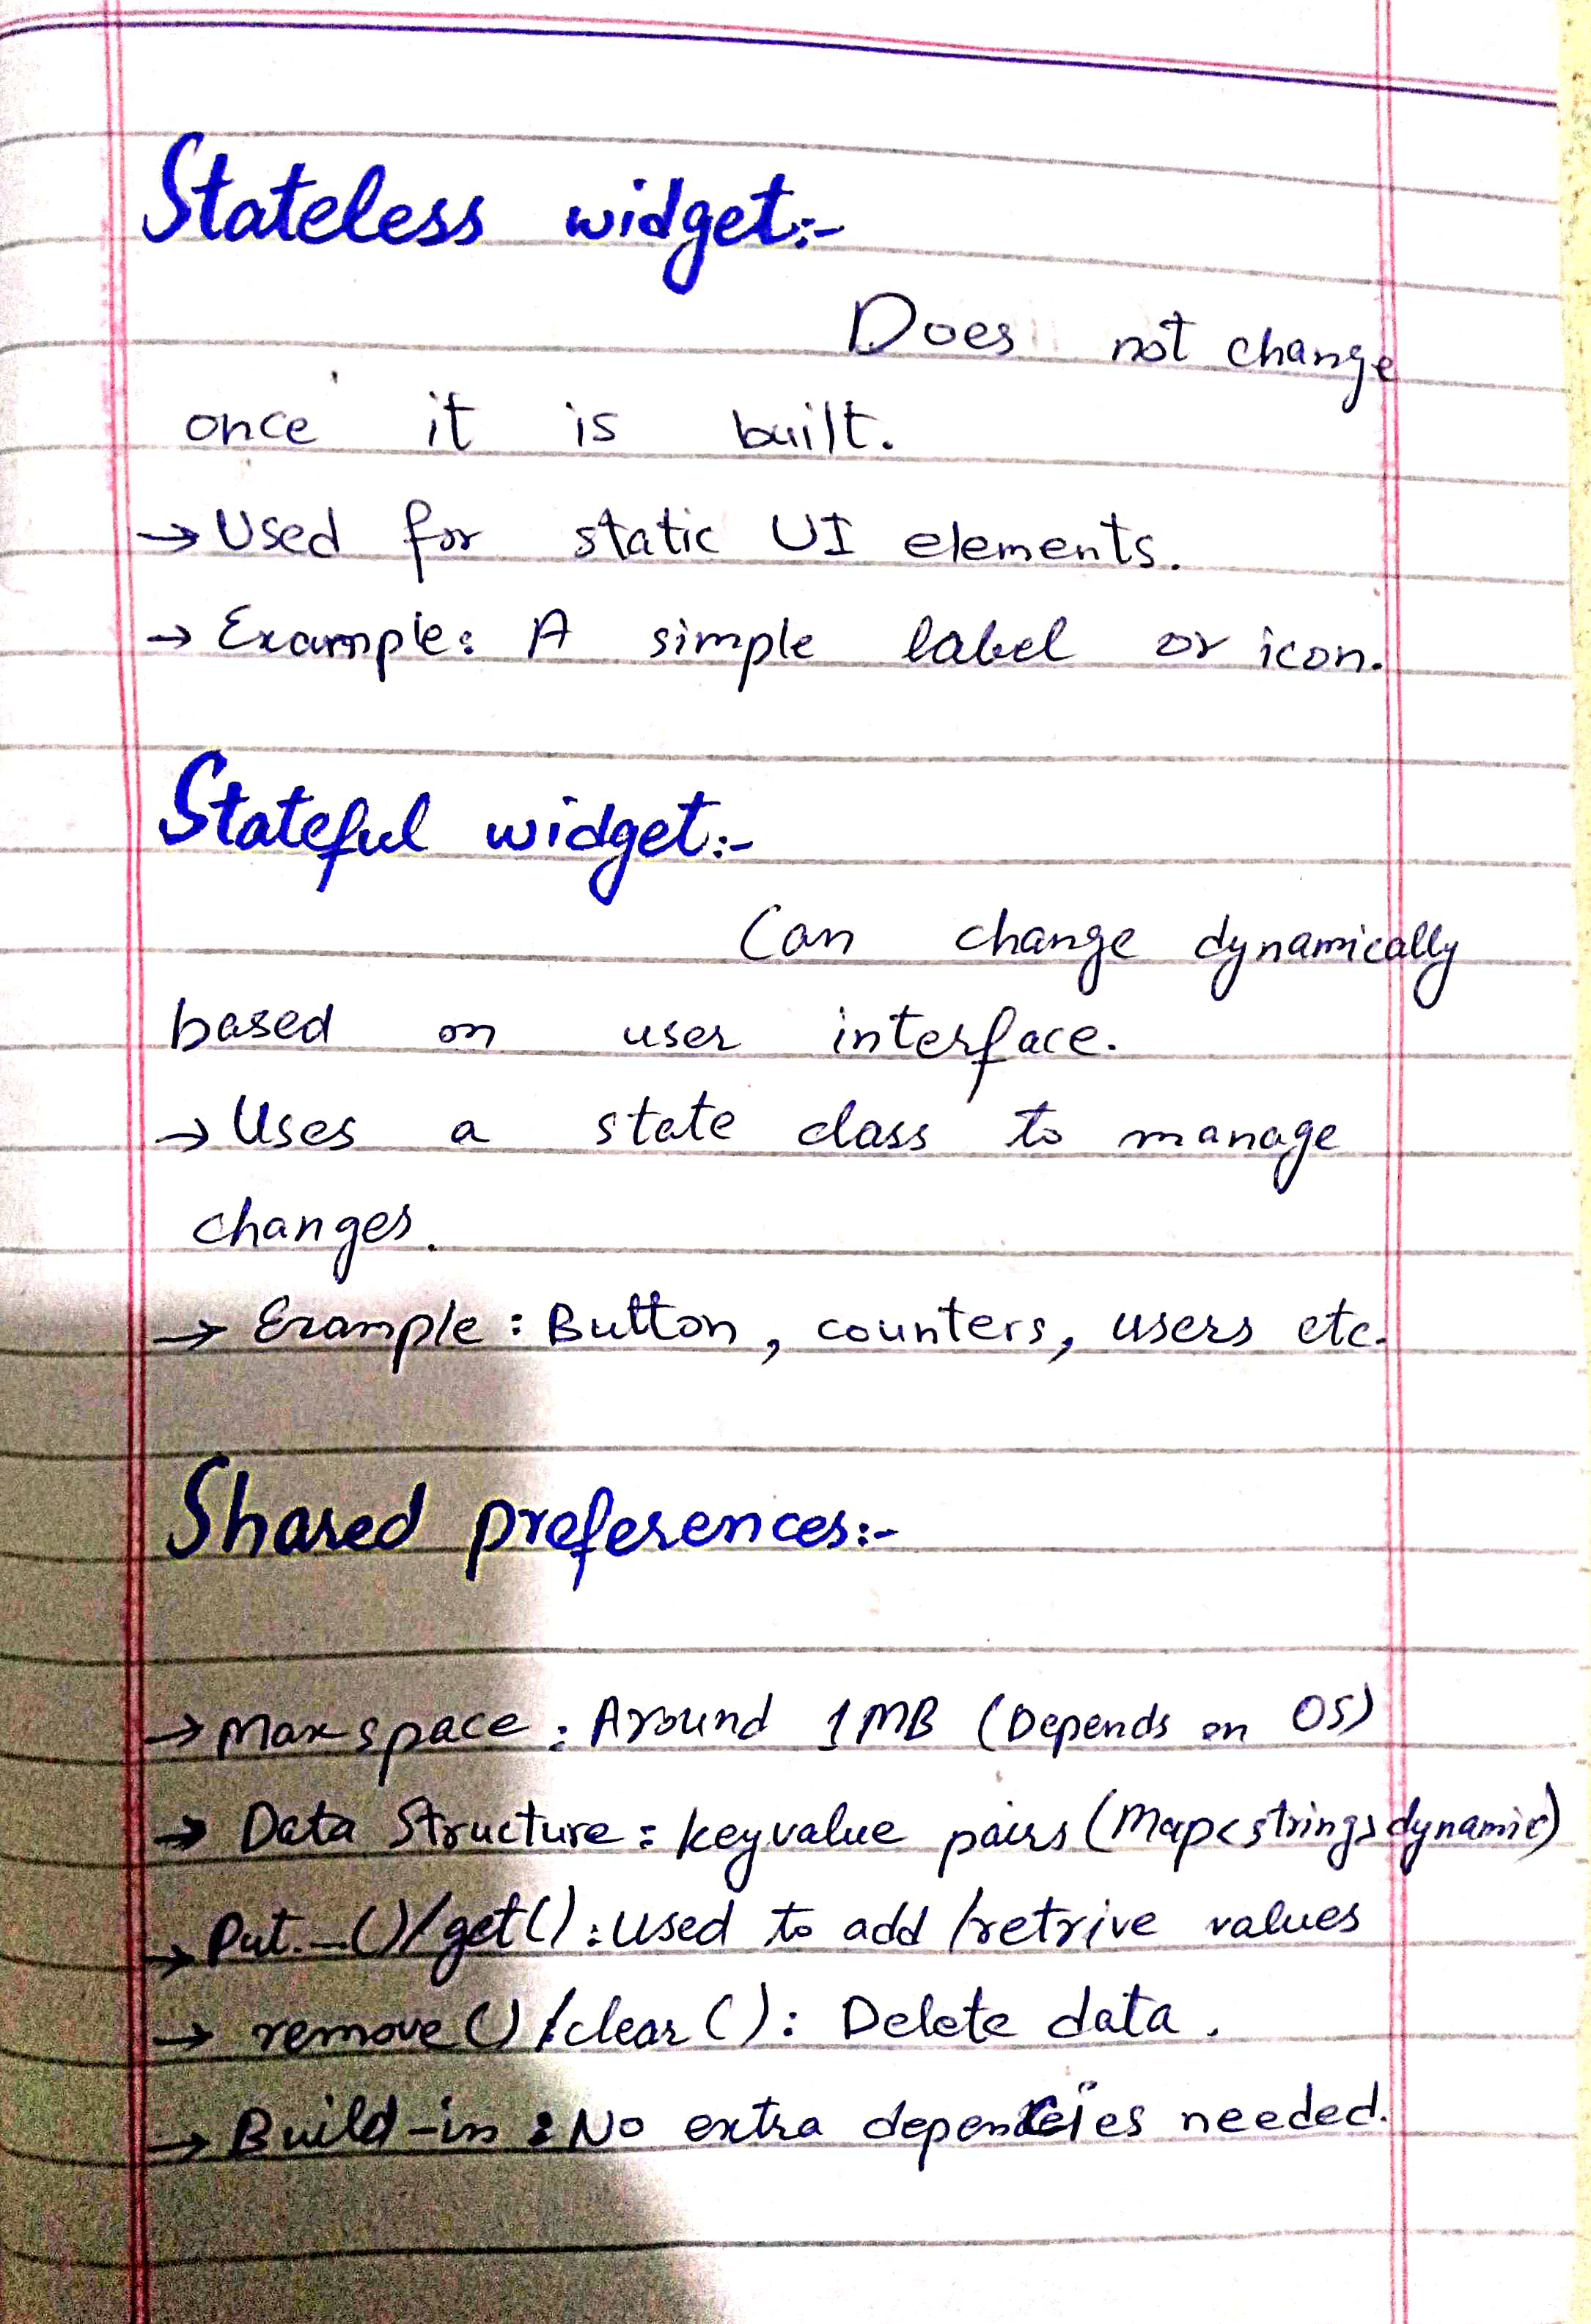 Stateless widget:-
Does not change
once it is built.
→ Used for static UI elements.
→ Example: A simple label or icon.
Stateful widget:-
Can change dynamically
based on user interface.
→ Uses a state class to manage
changes.
→ Example: Button, counters, users etc.
Shared preferences:-
→ Max space: Around 1MB (Depends on OS)
→ Data Structure: keyvalue pairs (Map<string,dynamic)
→ Put.-()/get(): used to add /retrive values
→ remove()/clear(): Delete data.
→ Build-in: No extra depencies needed.